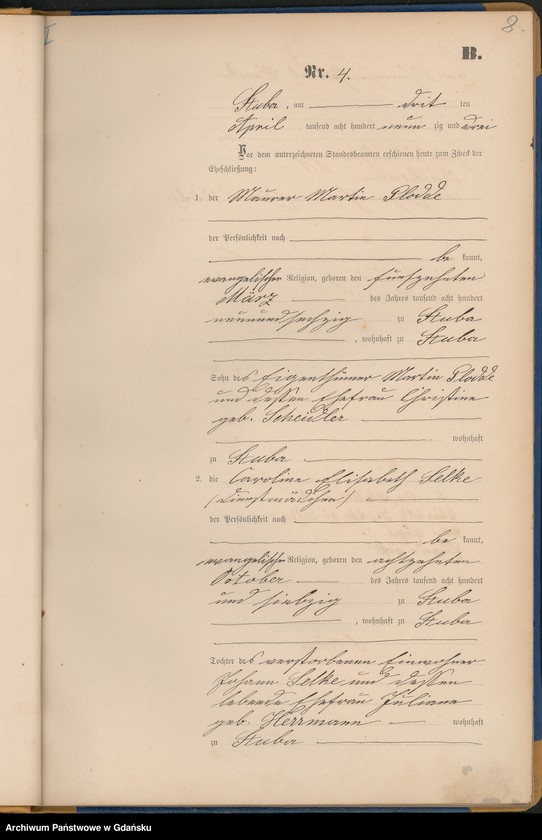 I
8.
B.
Nr. 4.
Stuba, am dritten
April tausend acht hundert neunzig und drei
Vor dem unterzeichneten Standesbeamten erschienen heute zum Zweck der
Eheschließung:
1. der Maurer Martin Plodde
der Persönlichkeit nach
bekannt,
evangelischer Religion, geboren den fünfzehnten
März des Jahres tausend acht hundert
neunundsechzig zu Stuba
, wohnhaft zu Stuba
Sohn des Eigenthümer Martin Plodde
und dessen Ehefrau Christine
geb. Scheidler
wohnhaft
zu Stuba
2. die Caroline Elisabeth Selke
(Dienstmädchen)
der Persönlichkeit nach
bekannt,
evangelischer Religion, geboren den achtzehnten
October des Jahres tausend acht hundert
und siebzig zu Stuba
, wohnhaft zu Stuba
Tochter des verstorbenen Einwohner
Johann Selke und dessen
lebende Ehefrau Juliane
geb. Herrmann wohnhaft
zu Stuba
Archiwum Państwowe w Gdańsku